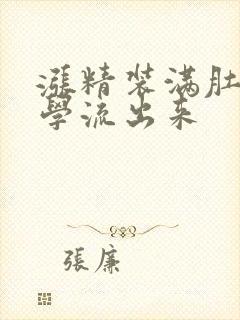 漲精装满肚
學流出来
張廉